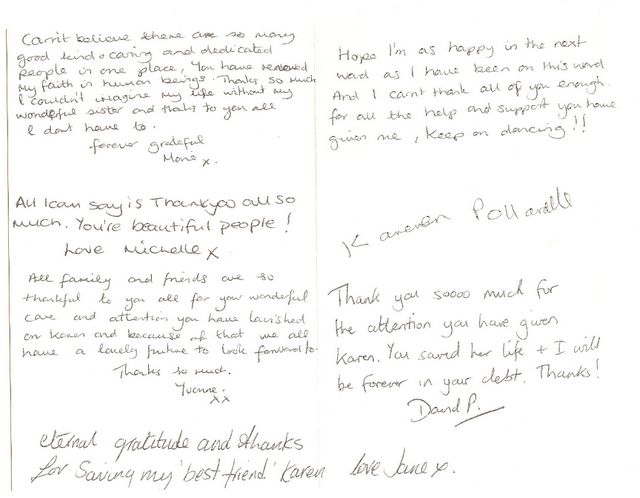 Can't believe there are so many
good kind + caring and dedicated
people in one place, You have renewed
my faith in human beings. Thanks so much
I couldn't imagine my life without my
wonderful sister and thanks to you all
I dont have to.
forever grateful
Marie x.
All I can say is Thankyoo all so
much. You're beautiful people!
Love Michelle x
All family and friends are so
thankful to you all for your wonderful
care and attention you have lavished
on Karen and because of that we all
have a lovely future to look forward to.
Thanks so much.
Yvonne.
xx
eternal gratitude and thanks
for Saving my 'best friend' Karen love Jane x.
Hope I'm as happy in the next
ward as I have been on this ward
And I carnt thank all of you enough.
for all the help and support you have
given me, Keep on dancing!!
Thank you soooo much for
the attention you have given
Karen. You saved her life + I will
be forever in your debt. Thanks!
David P.